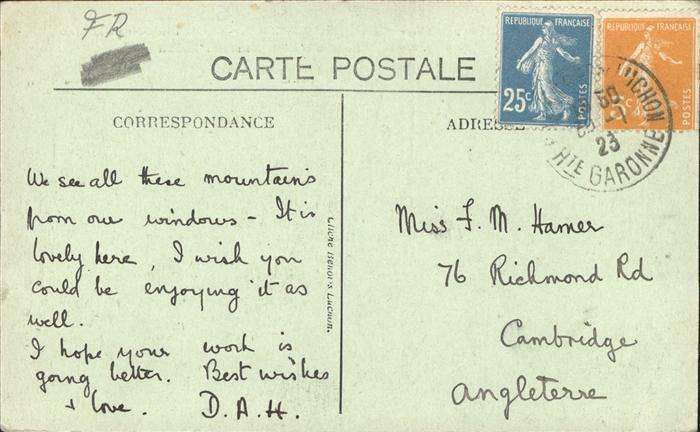 FR
CARTE POSTALE
REPUBLIQUE FRANÇAISE
25c
POSTES
REPUBLIQUE FRANÇAISE
POSTES
LUCHON
23
HTE GARONNE
CORRESPONDANCE
ADRESSE
We see all these mountains
from our windows – It is
lovely here, I wish you
could be enjoying it as
well.
I hope your work is
going better. Best wishes
& love. D.A.H.
Cliché Benoits Luchon.
Miss F. M. Hamer
76 Richmond Rd
Cambridge
Angleterre